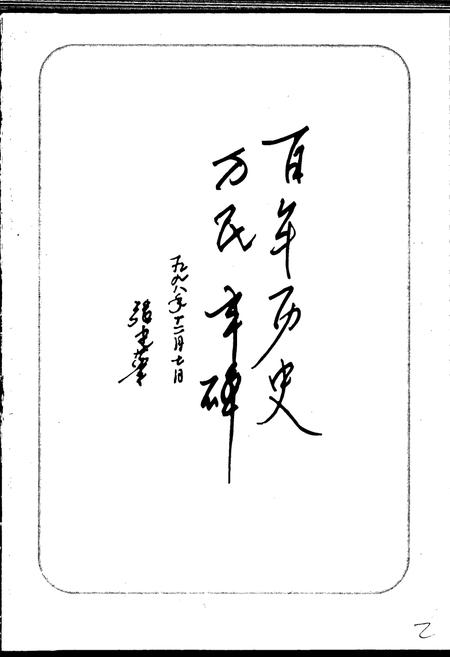 百年历史
万民丰碑
九九八年十二月七日
张光